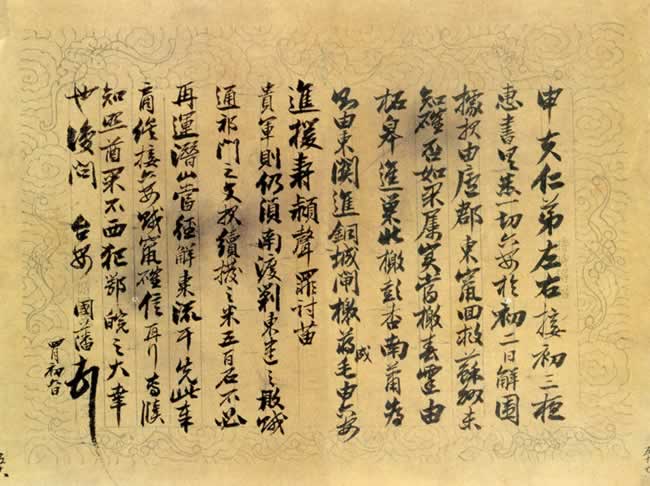 申夫仁弟左右接初三夜
惠書具悉一切六安於初二日解圍
據報由廬郡東竄回救蘇州未
知確否如果屬實當檄春霆由
柘皋進巢北檄彭杏南蕭為
由東關進銅城閘檄蔣毛由六安
成
進援壽潁聲罪討苗
貴軍則仍須南渡剿東建之敗賊
通祁門之文報續撥之米五百石不必
再運潛山當徑解東流耳先此奉
商續接六安賊竄確信再行專牘
知照苗果不西犯鄂皖之大幸
也復問 台安 國藩
四月初